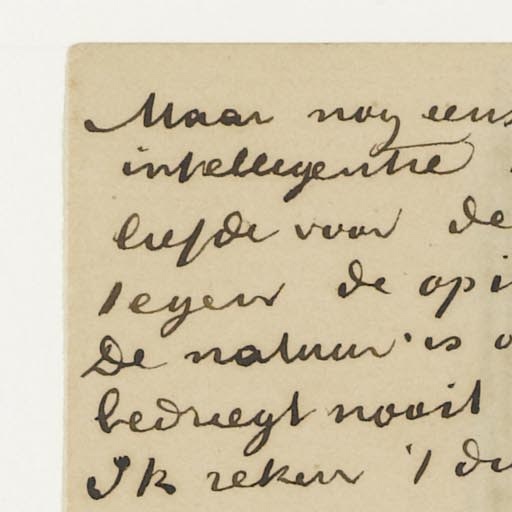 Maar nog eens
intelligentie
liefde voor de
tegen de opi
De natuur is o
bedriegt nooit
Ik reken 't du